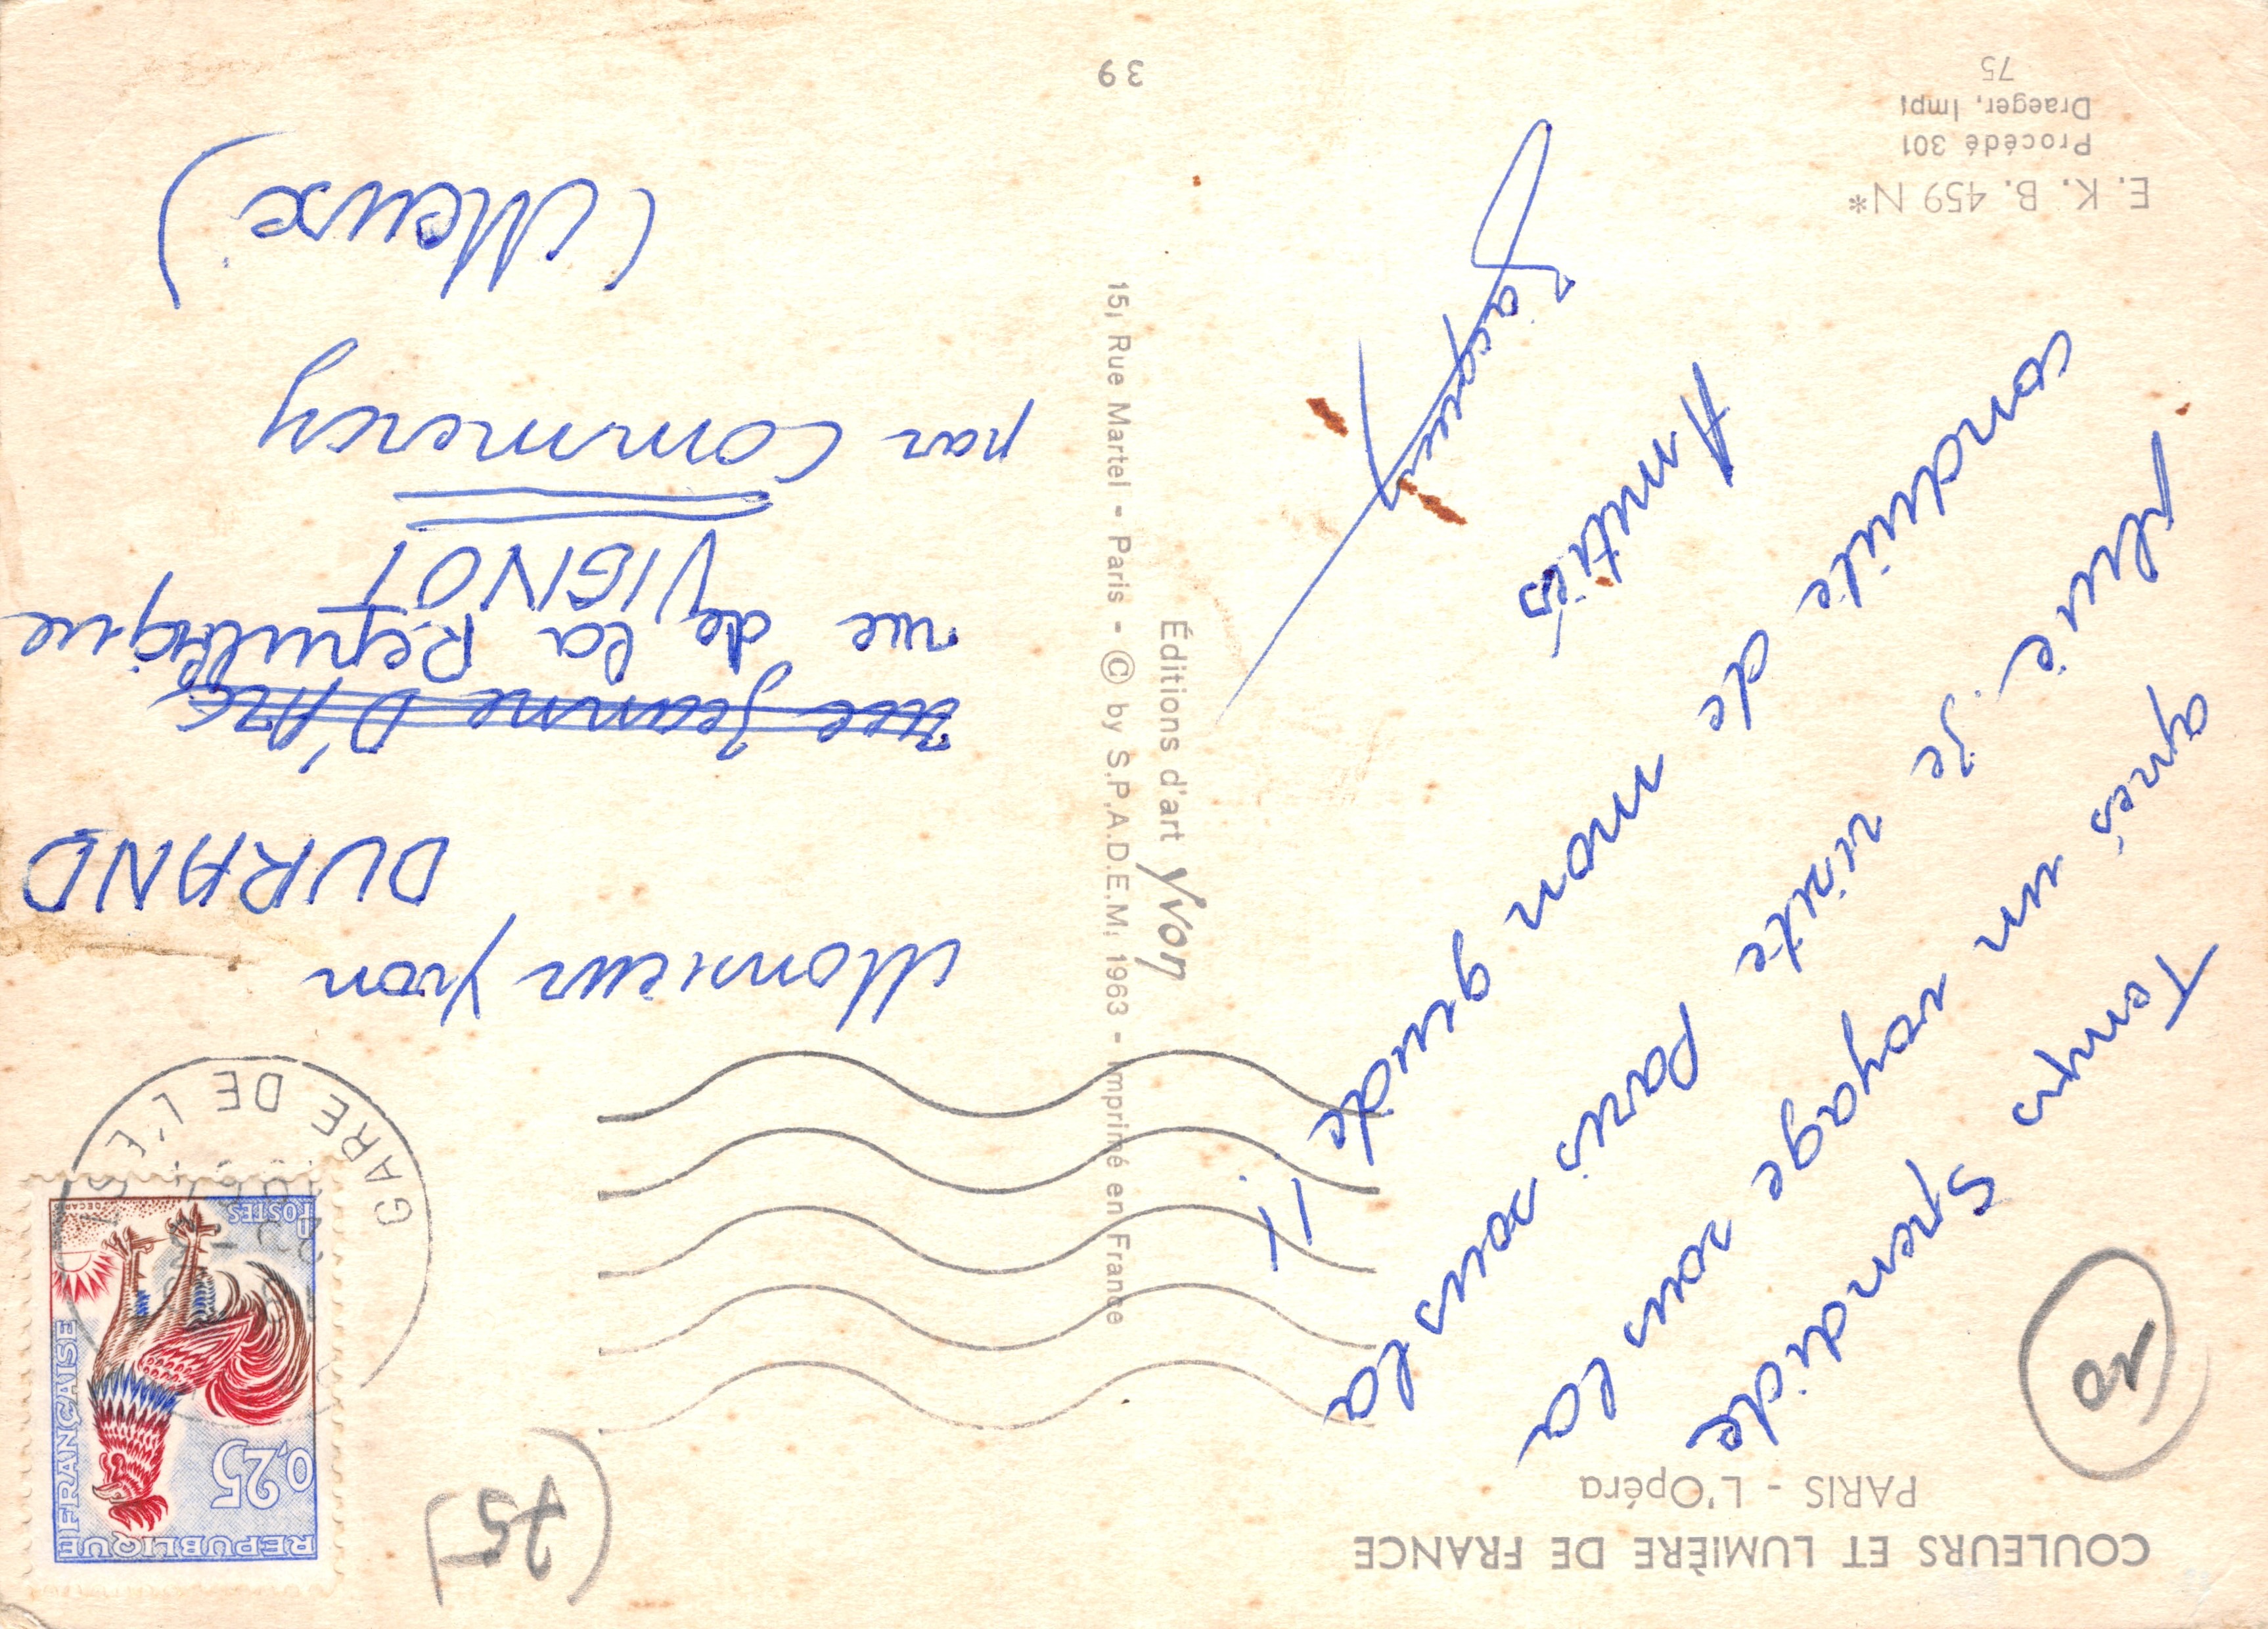 COULEURS ET LUMIÈRE DE FRANCE
PARIS - L'Opéra
Temps Spendide
après un voyage sous la
pluie. Je visite Paris sous la
conduite de mon guide !!
Amitiés
Jacques
E. K. B. 459 N*
Procédé 301
Draeger, Imp.
75
Éditions d'art Yvon
15, Rue Martel - Paris - © by S.P.A.D.E.M. 1963 - Imprimé en France
39
(75)
REPUBLIQUE FRANÇAISE
0,25
POSTES
DECARIS
GARE DE L'EST
Monsieur Yvon
DURAND
rue Jeanne D'Arc
rue de la République
VIGNOT
par Commercy
(Meuse)